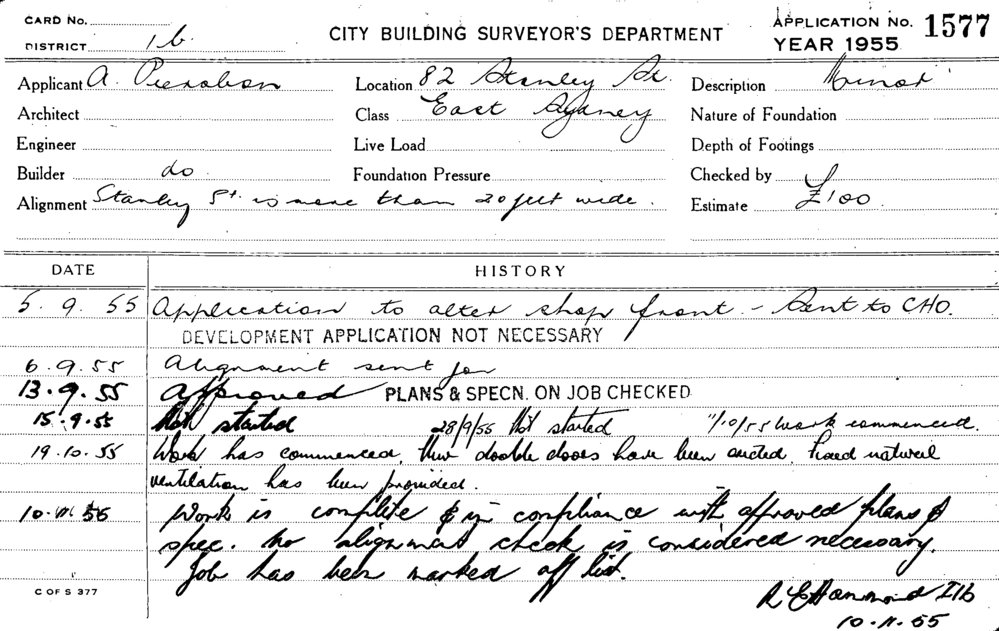 CARD No.
DISTRICT 1b
CITY BUILDING SURVEYOR'S DEPARTMENT
APPLICATION No. 1577
YEAR 1955
Applicant A.
Location 82 Stanley St.
Description Minor
Architect
Class East Sydney
Nature of Foundation
Engineer
Live Load
Depth of Footings
Builder do
Foundation Pressure
Checked by
Alignment Stanley St. is more than 20 feet wide.
Estimate £100
DATE HISTORY
5.9.55 Application to alter shop front. - Sent to CHO.
DEVELOPMENT APPLICATION NOT NECESSARY
6.9.55 Alignment sent for
13.9.55 Approved PLANS & SPECN. ON JOB CHECKED
15.9.55 Not started 28/9/55 Not started 11/10/55 Work commenced.
19.10.55 Work has commenced, double doors have been erected, fixed natural
ventilation has been provided.
10.11.55 Work is complete & in compliance with approved plans &
spec. No alignment check is considered necessary.
Job has been marked off list.
C OF S 377
R E Hammond I1b
10.11.55